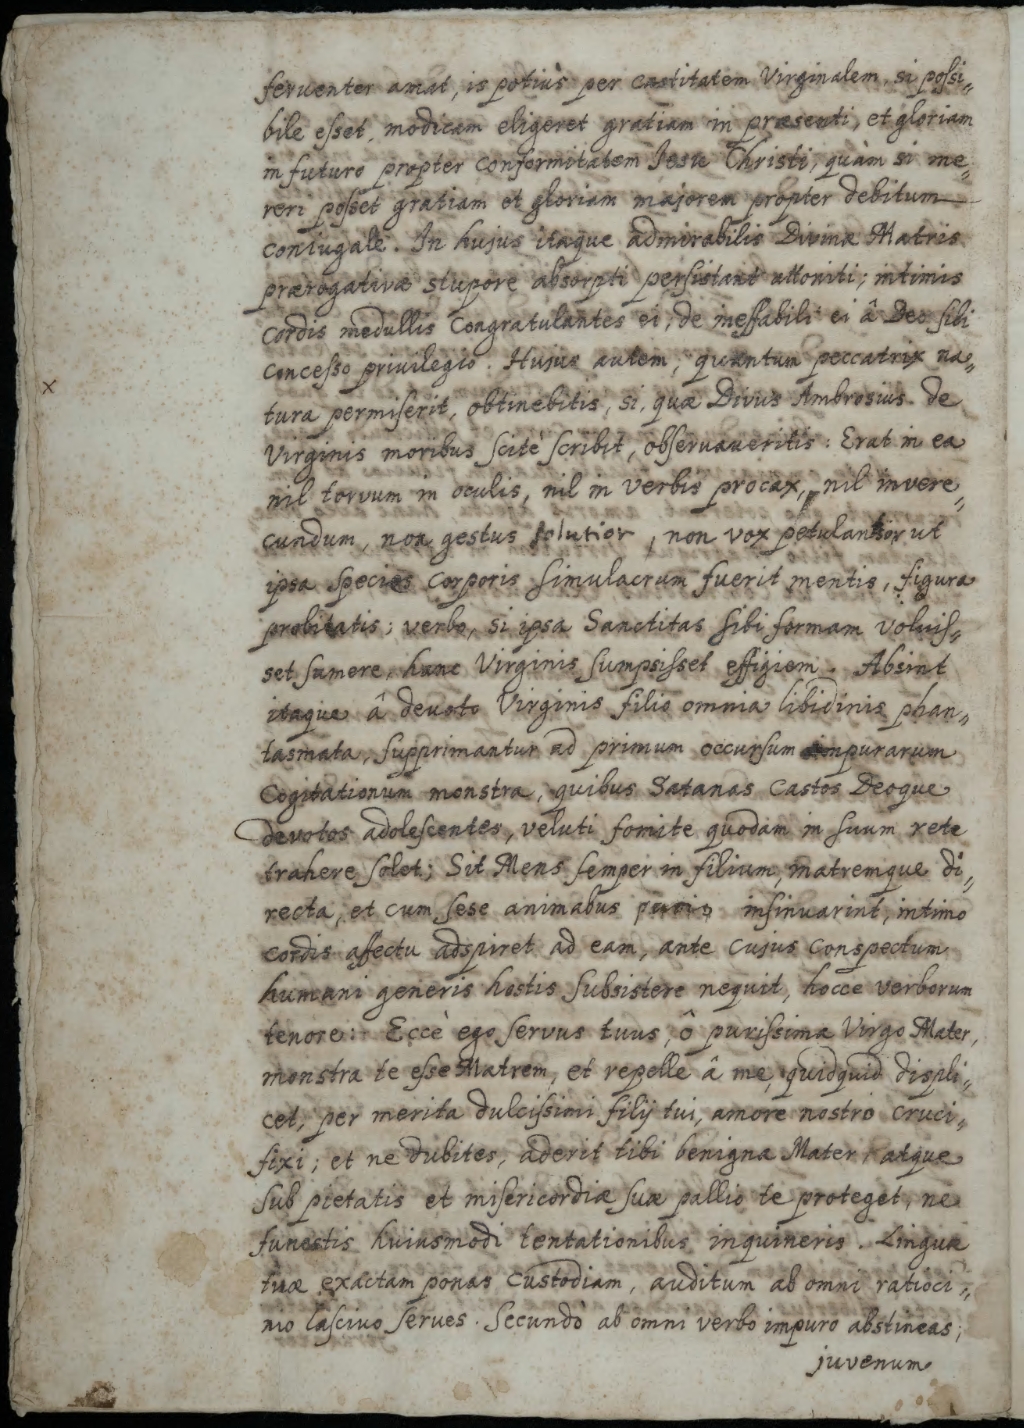 feruenter amat, is potiùs per castitatem Virginalem, si possi„
bile esset, modicam eligeret gratiam in præsenti, et gloriam
in futuro propter conformitatem Jesu Christi, quàm si me„
reri posset gratiam et gloriam majorem propter debitum
coniugale. In hujus itaque admirabilis Divinæ Matris
prærogativæ stupore absorpti persistant attoniti; intimis
cordis medullis congratulantes ei, de ineffabili ei â Deo sibi
concesso privilegio. Hujus autem, quantum peccatrix na„
x
tura permiserit, obtinebitis, si, quæ Divus Ambrosius de
Virginis moribus scitè scribit, observaveritis: Erat in ea
nil torvum in oculis, nil in verbis procax, nil invere„
cundum, non gestus solutior, non vox petulantior ut
ipsa species corporis simulacrum fuerit mentis, figura
probitatis; verbo, si ipsa Sanctitas sibi formam voluis„
set sumere, hanc Virginis sumpsisset effigiem. Absint
itaque â devoto Virginis filio omnia libidinis phan„
tasmata, supprimantur ad primum occursum impurarum
Cogitationum monstra, quibus Satanas castos Deoque
devotos adolescentes, veluti fomite quodam in suum rete
trahere solet; Sit Mens semper in filium, matremque di„
recta, et cum sese animabus insinuarint, intimo
cordis affectu adspiret ad eam, ante cujus conspectum
humani generis hostis subsistere nequit, hocce verborum
tenore: Eccè ego servus tuus, ô purissima Virgo Mater,
monstra te esse Matrem, et repelle â me, quidquid displi„
cet, per merita dulcissimi filij tui, amore nostro cruci„
fixi; et ne dubites, aderit tibi benigna Mater, atque
sub pietatis et misericordiæ suæ pallio te proteget, ne
funestis huiusmodi tentationibus inquineris. Linguæ
tuæ exactam ponas custodiam, auditum ab omni ratioci„
nio lascivo serves. Secundò ab omni verbo impuro abstineas;
juvenum